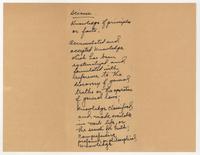 Science
Knowledge of principles
or facts.
Accumulated and
accepted knowledge
which has been
systematized and
formulated with
reference to the
discovery of general
truths or the operation
of general laws;
knowledge classified
and made available
in work, life, or
the search for truth;
comprehensive,
profound, or philosophical
knowledge